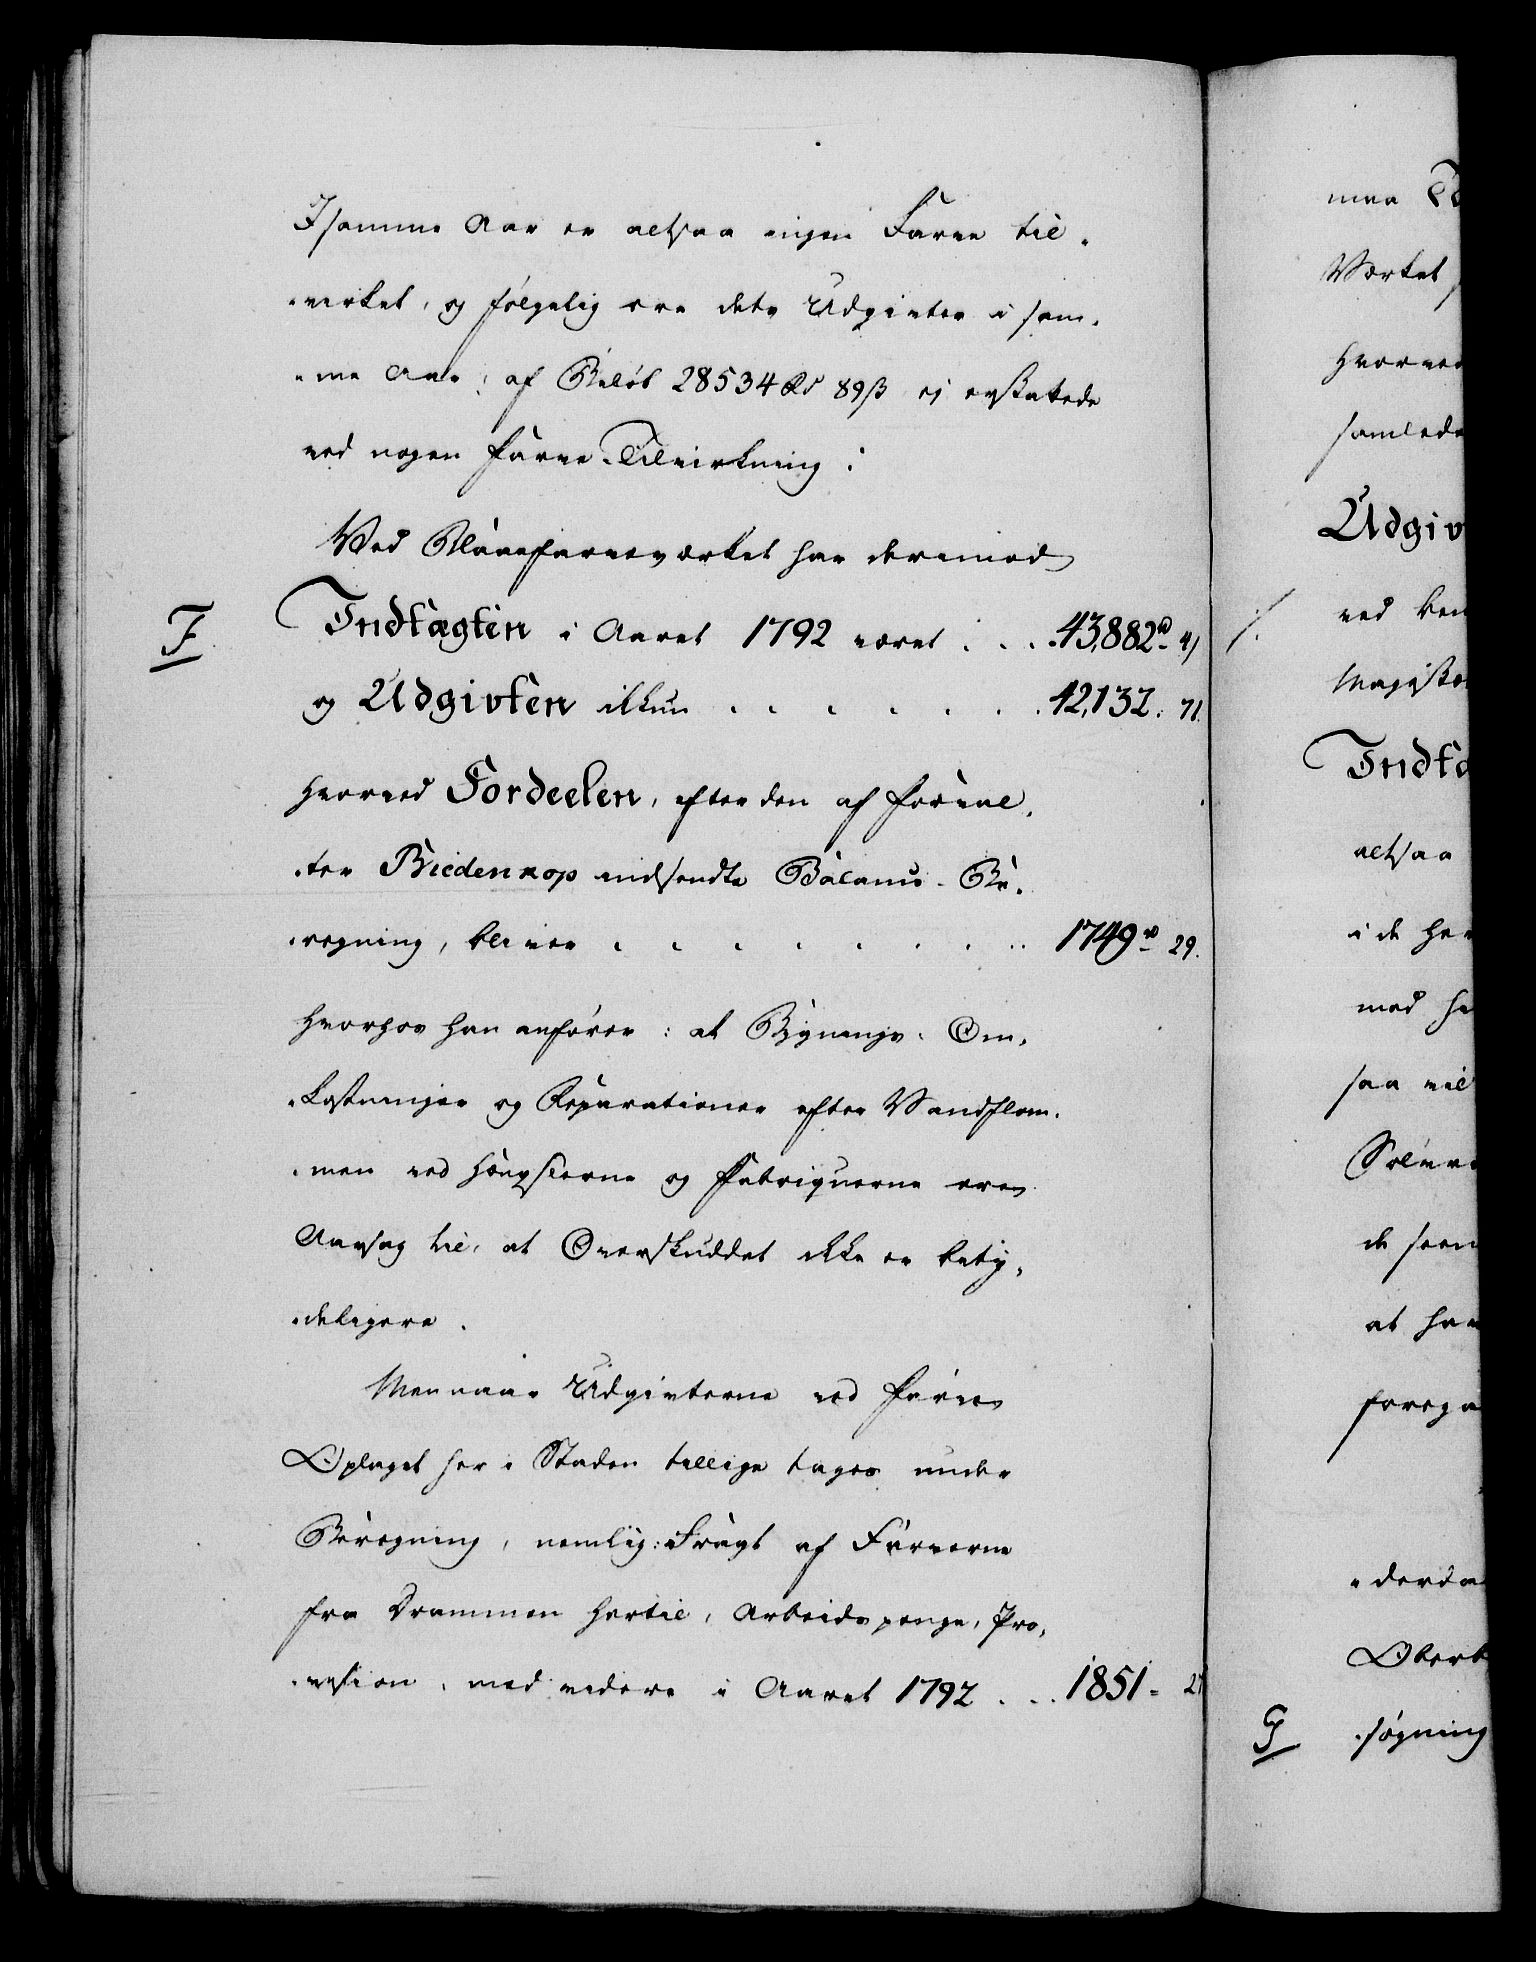 I samme Aar er altsaa ingen Farve til-
-virket, og følgelig ere dets Udgivter i sam-
-me Aar, af Beløb 28534 Rd 89 ß ej erstatede
ved nogen Farve-Tilvirkning.
Ved Blaaefarveværket har derimod
F
Indtægten i Aaret 1792 været . . . 43,882 rd 4
og Udgivten ikkun . . . . . . . 42,132: 71.
hvorved Fordeelen, efter den af Forval-
-ter Biedenkop indsendte Balance-Be-
-regning, bliver . . . . . . . . 1749 rd 29.
hvorhos han anfører: at Bygnings-Om-
-kostninger og Reparationer efter Vandflom-
-men ved Huusene og Fabriquerne ere
Aarsag til, at Overskuddet ikke er bety-
-deligere.
Men naar Udgivterne ved Farve
Oplaget her i Staden tillige tages under
Beregning, nemlig: Fragt af Farverne
fra Drammen hertil, Arbeidspenge, Pro-
-vision, med videre i Aaret 1792 . . . 1851 - 2
Værket
hvorved
samlede
Udgiv
ved
altsaa
i de
med
saa vil
de
at
Oberb
G
-søgning